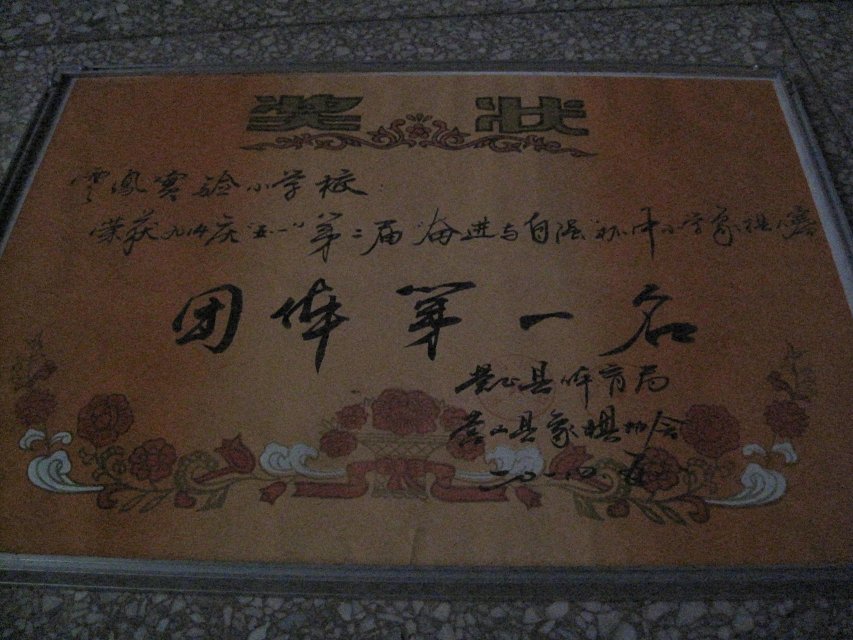 奖状
云凤实验小学校：
荣获九四庆"五一"第二届"奋进与自强"杯中小学象棋比赛
团体第一名
营山县体育局
营山县象棋协会